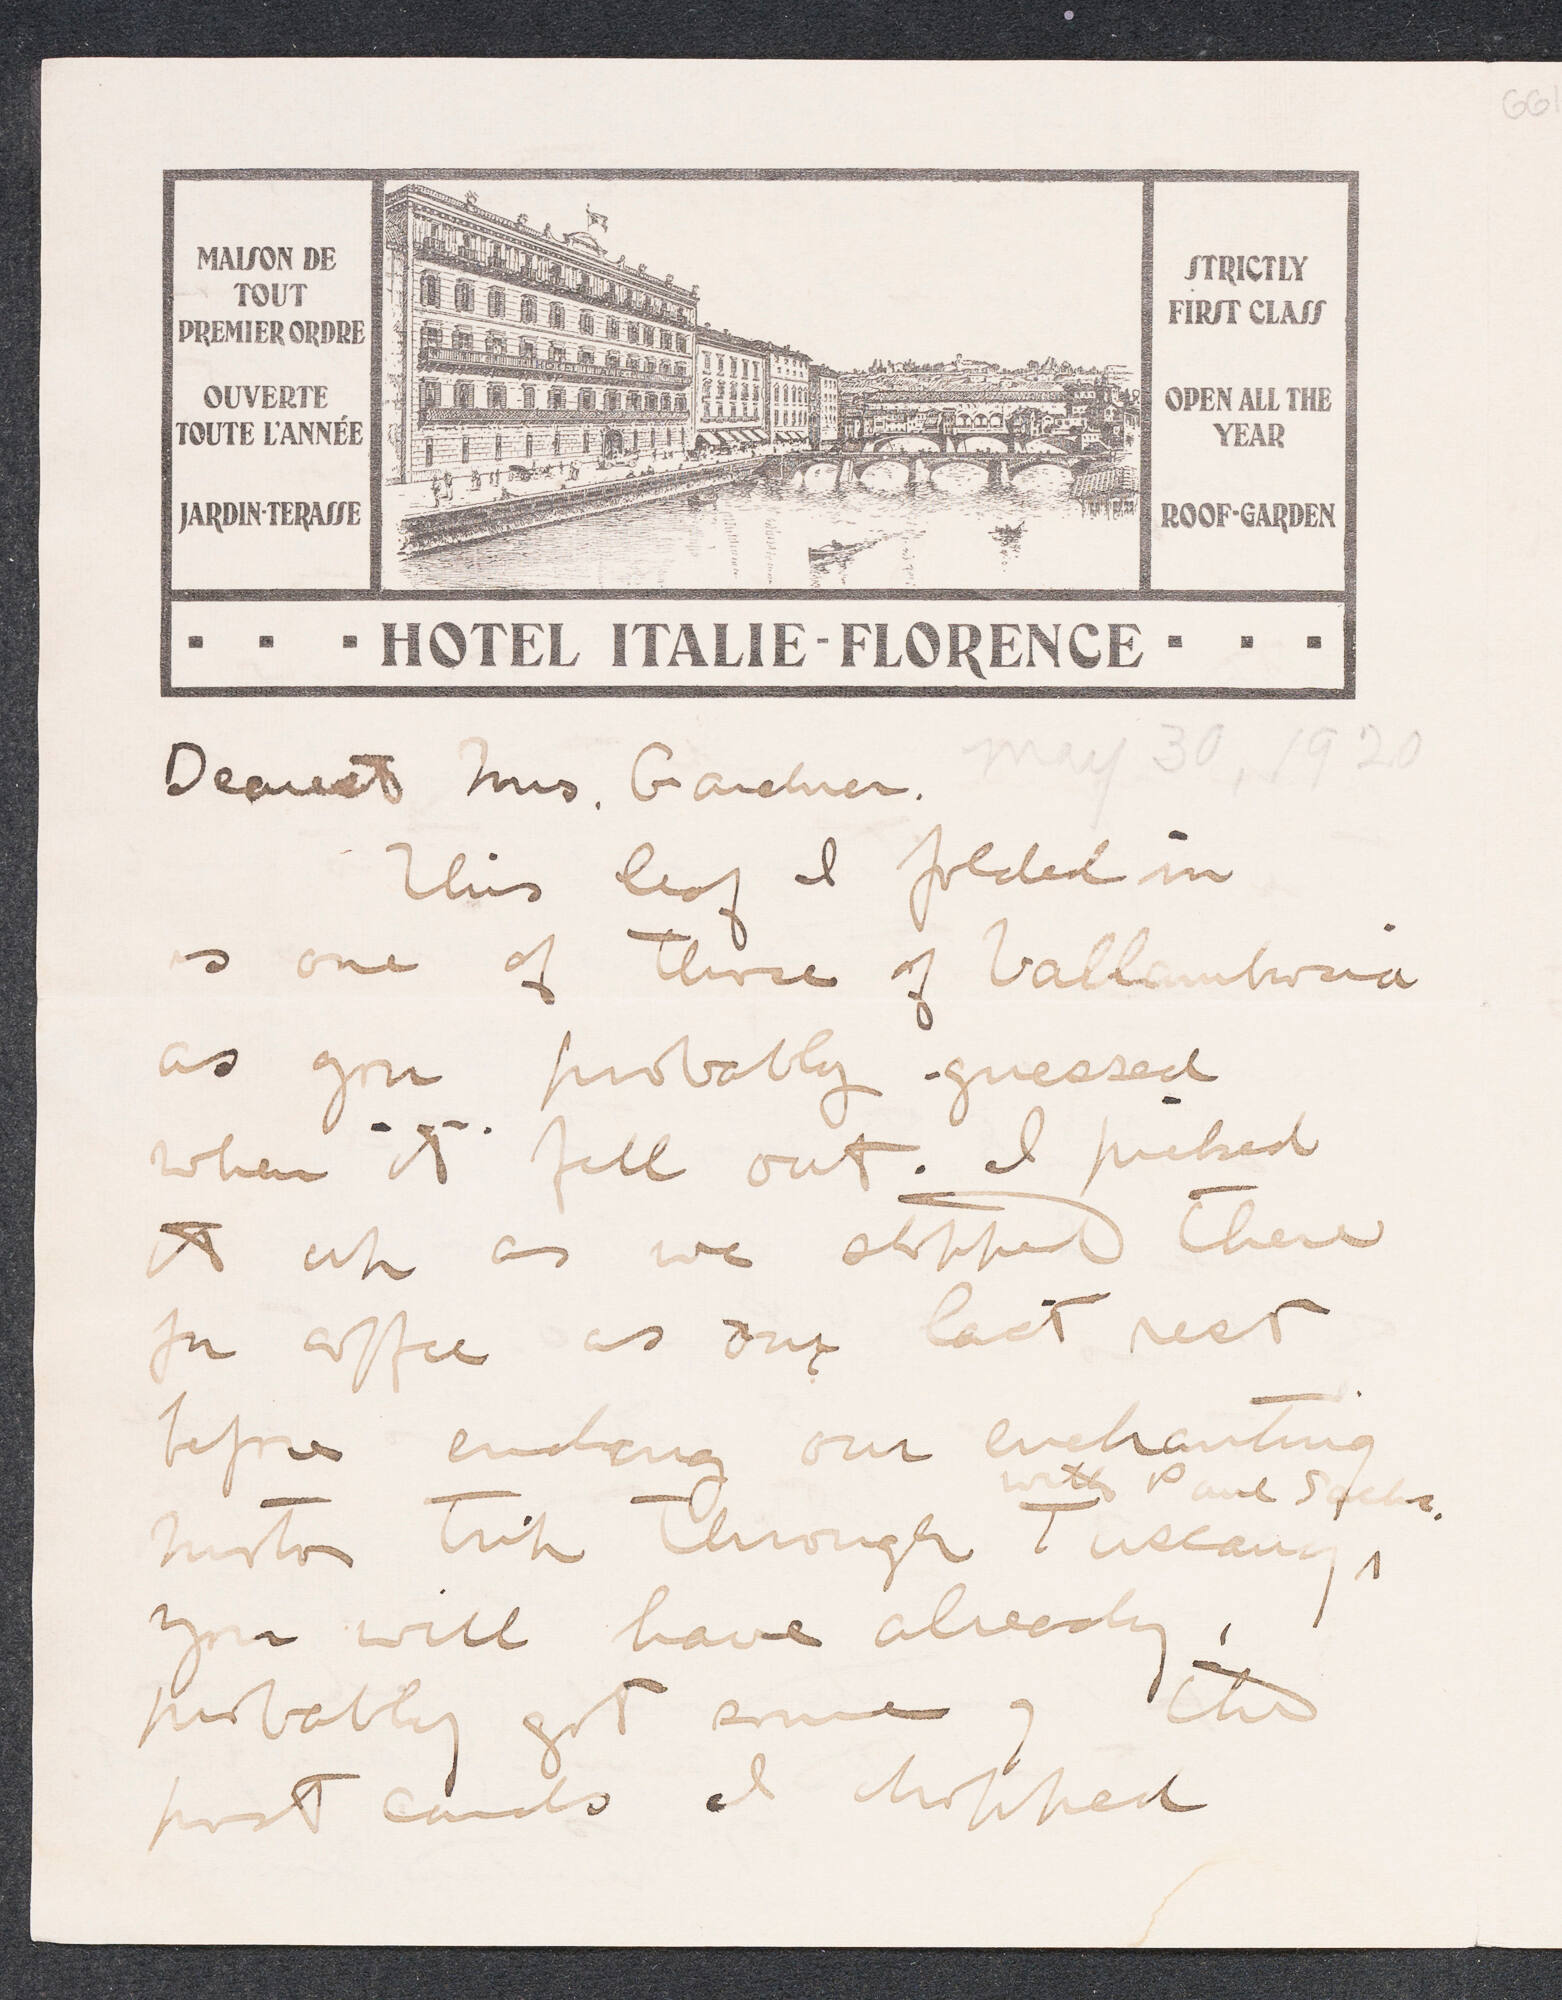 661
MAISON DE
TOUT
PREMIER ORDRE
OUVERTE
TOUTE L'ANNÉE
JARDIN-TERASSE
STRICTLY
FIRST CLASS
OPEN ALL THE
YEAR
ROOF-GARDEN
HOTEL ITALIE-FLORENCE
May 30, 1920
Dearest Mrs. Gardner.
This leaf I folded in
is one of those of Vallambrosia
as you probably guessed
when "it" fell out. I picked
it up as we stopped there
for coffee as our last rest
before ending our enchanting
with Paul Sachs.
motor trip through Tuscany,
you will have already,
probably got some of the
post cards I dropped